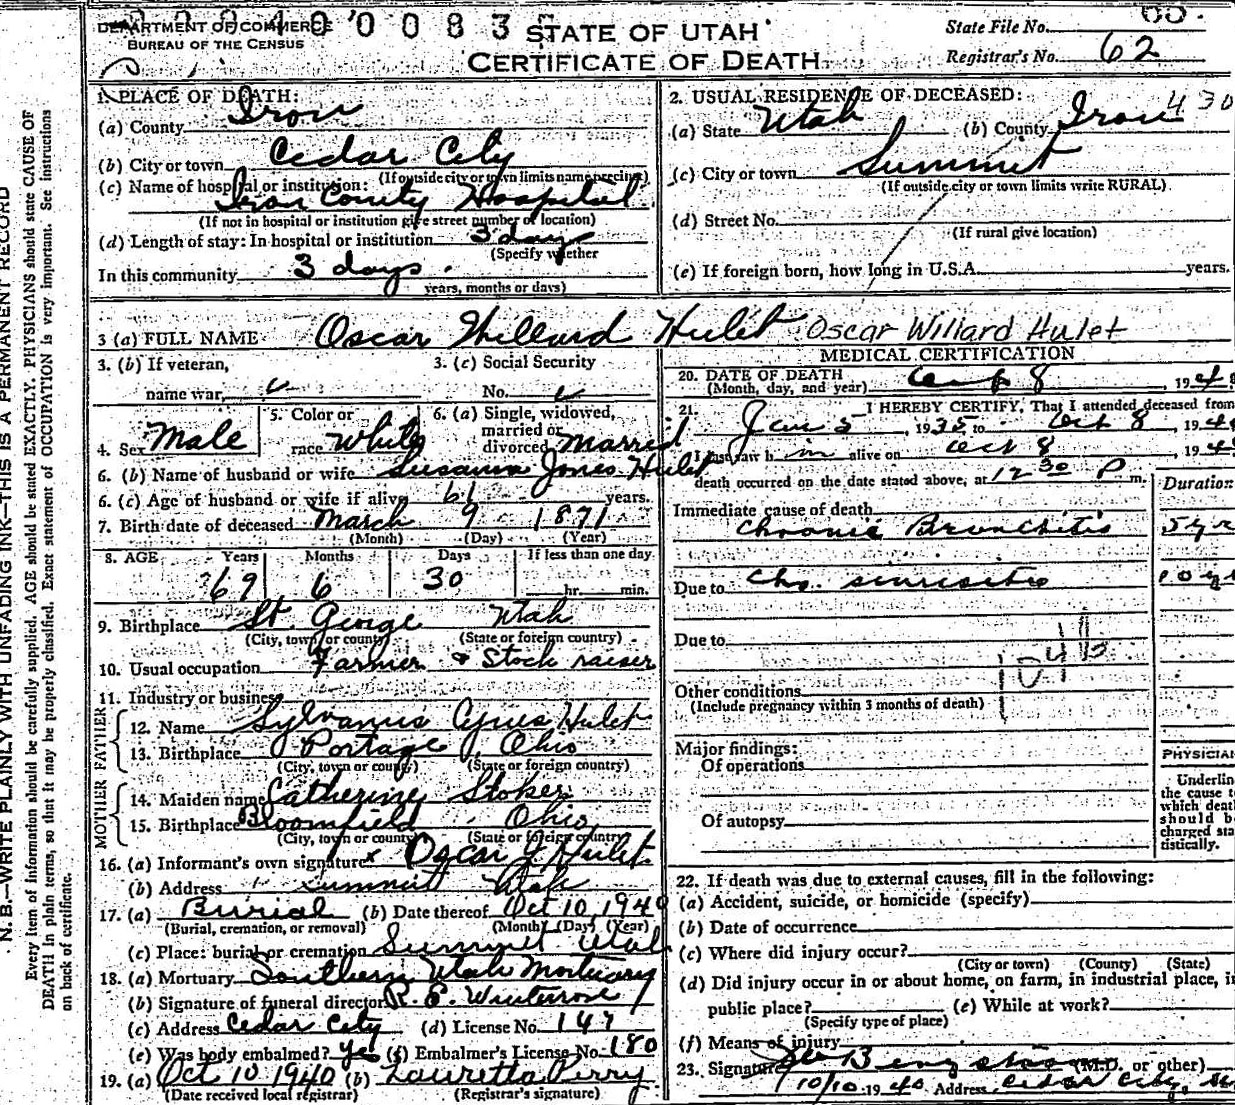 DEPARTMENT OF COMMERCE
BUREAU OF THE CENSUS
0 0 8 3
STATE OF UTAH
CERTIFICATE OF DEATH
State File No.
Registrar's No. 62
1. PLACE OF DEATH:
(a) County Iron
(b) City or town Cedar City
(If outside city or town limits name precinct)
(c) Name of hospital or institution:
Iron County Hospital
(If not in hospital or institution give street number or location)
(d) Length of stay: In hospital or institution 3 days
(Specify whether
In this community 3 days.
years, months or days)
2. USUAL RESIDENCE OF DECEASED: 430
(a) State Utah (b) County Iron
(c) City or town Summit
(If outside city or town limits write RURAL)
(d) Street No.
(If rural give location)
(e) If foreign born, how long in U.S.A. years.
3 (a) FULL NAME Oscar Willard Hulet Oscar Willard Hulet
3. (b) If veteran, name war,
3. (c) Social Security No.
4. Sex Male
5. Color or race White
6. (a) Single, widowed, married or divorced Married
6. (b) Name of husband or wife Susanna Jones Hulet
6. (c) Age of husband or wife if alive 61 years.
7. Birth date of deceased March 9 1871
(Month) (Day) (Year)
8. AGE Years Months Days If less than one day
69 6 30 hr. min.
9. Birthplace St. George Utah
(City, town or county) (State or foreign country)
10. Usual occupation Farmer & Stock raiser
11. Industry or business
FATHER
12. Name Sylvanus Cyrus Hulet
13. Birthplace Portage, Ohio
(City, town or county) (State or foreign country)
MOTHER
14. Maiden name Catherine Stoker
15. Birthplace Bloomfield Ohio
(City, town or county) (State or foreign country)
16. (a) Informant's own signature x Oscar J. Hulet
(b) Address Summit Utah
17. (a) Burial (b) Date thereof Oct 10, 1940
(Burial, cremation, or removal) (Month) (Day) (Year)
(c) Place: burial or cremation Summit Utah
18. (a) Mortuary Southern Utah Mortuary
(b) Signature of funeral director R. E. Winterrose
(c) Address Cedar City (d) License No. 147
(e) Was body embalmed? Yes (f) Embalmer's License No. 180
19. (a) Oct 10 1940 (b) Lauretta Perry
(Date received local registrar) (Registrar's signature)
MEDICAL CERTIFICATION
20. DATE OF DEATH
(Month, day, and year) Oct 8, 194
21. I HEREBY CERTIFY, That I attended deceased from
Jan 5, 1935 to Oct 8, 194
I last saw him alive on Oct 8, 194
death occurred on the date stated above, at 12 30 P m.
Duration
Immediate cause of death
Chronic Bronchitis 5 yr
Due to Chr. sinusitis 10 yr
Due to
104b
Other conditions
(Include pregnancy within 3 months of death)
Major findings:
Of operations
Of autopsy
PHYSICIAN
Underline
the cause to
which death
should be
charged sta
tistically.
22. If death was due to external causes, fill in the following:
(a) Accident, suicide, or homicide (specify)
(b) Date of occurrence
(c) Where did injury occur?
(City or town) (County) (State)
(d) Did injury occur in or about home, on farm, in industrial place, in
public place? (e) While at work?
(Specify type of place)
(f) Means of injury
23. Signature (M.D. or other)
10/10 1940 Address Cedar City,
N.B.—WRITE PLAINLY WITH UNFADING INK—THIS IS A PERMANENT RECORD
Every item of information should be carefully supplied. AGE should be stated EXACTLY. PHYSICIANS should state CAUSE OF
DEATH in plain terms, so that it may be properly classified. Exact statement of OCCUPATION is very important. See instructions
on back of certificate.